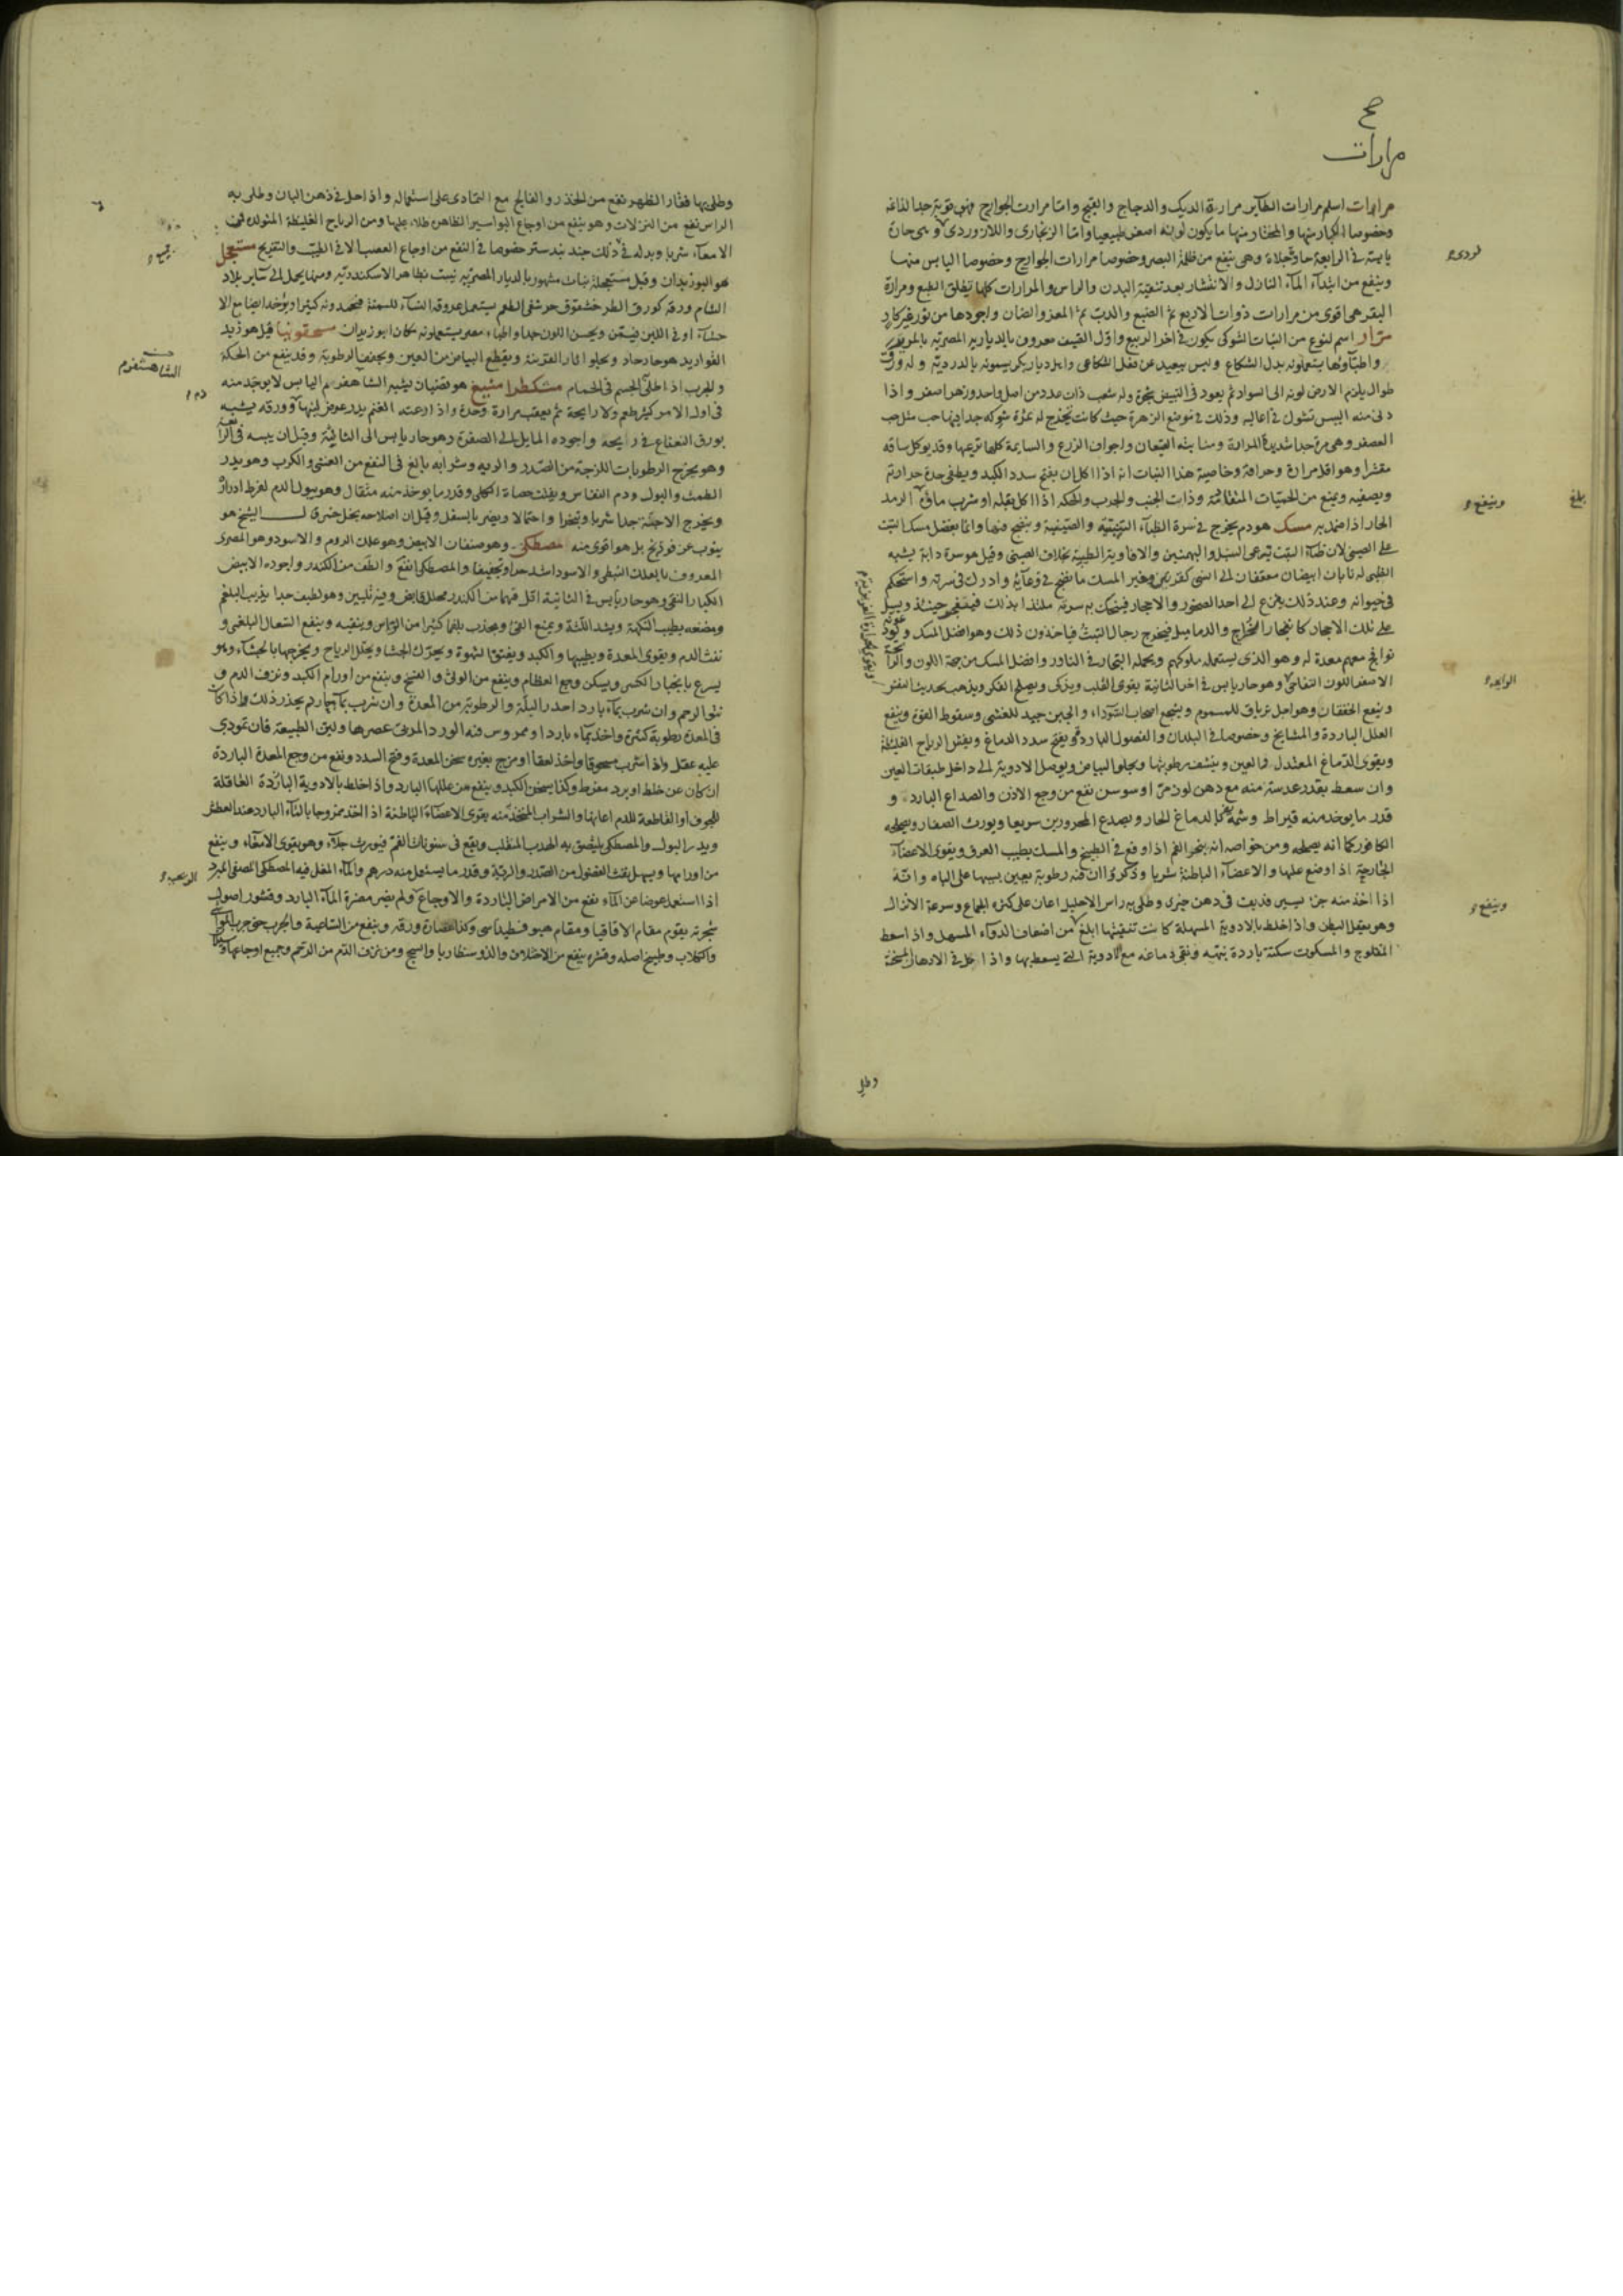 صح
مرارات
مرارات اسلم مرارات الطاير مرارة الديك والدجاج والقبج واما مرارت الجوارح فهى قوية جدا لذاعة
وخصوصا الكبار منها والمختار منها ما يكون لونه اصفر طبيعيا واما الزنجارى واللازوردى وهى حارة
يابسة فى الرابعة حارة جلاءة وهى ينفع من ظلمة البصر وخصوصا مرارات الجوارح وخصوصا اليابس منها
وينفع من ابتدآء المآء النازل والانتشار بعد تنقية البدن والراس والمرارات كلها تطلق الطبع ومرارة
البقر هى اقوى من مرارات ذوات الاربع ثم الضبع والدب ثم المعز والضان واجودها من ثور غير كار
مرار اسم لنوع من النبات الشوكى يكون فى اخر الربيع واول القيف معروف بالديارية المصرية بالمرير
واطبآؤها يستعملونه بدل الشكاع وليس ببعيد عن فعل الشكاعى واهل ديار بكر يسمونه بالدردية وله ورق
طوال يلزم الارض لونه الى السواد ثم يعود فى التبييض بحمرة وله شعب ذات عدد من اصل واحد وزهر اصفر واذا
دنى منه اليبس تشوك فى اعاليه وذلك فى موضع الزهرة حيث كانت تخرج له ثمرة شوكه جدا فيها حب مثل حب
العصفر وهى مرة جدا شديدة المرارة ومنابته القيعان واجواف الزرع والسايمة كلها ترعيها وقد يوكل ساقه
مقشرا وهو اقل مرارة وحرافة وخاصية هذا النبات انه اذا اكل ان يفتح سدد الكبد ويطفى حدة حرارته
ويصفيه ويمنع من الحميات المتقادمة وذات الجنب والجرب والحكه اذا اكل بقله او شرب مآؤه الرمد
الحار اذا ضمد به مسك هو دم يخرج فى سرة الظبآء التبتية والصينية وينضج فيها وانما يفضل مسك التبت
على الصينى لان ظبآء التبت ترعى السنبل والبهمنين والافاوية الطيبة بخلاف الصينى وقيل هو سرة دابة يشبه
الظبى له نابان ابيضان معقفان الى انسى كقرنين وغير المسك ما نضج فى وعآيه وادرك فى سرته واستحكم
فى حيوانه وعند ذلك يفزع الى احد الصخور والاحجار فيحتك به سرته ملتذا بذلك فينفجر حينئذ ويسيل
على تلك الاحجار كانفجار الخراج والدماميل فيخرج رجال التبت فياخذون ذلك وهو افضل المسك ويكون
نوافج معهم معدة له وهو الذى يستعمله ملوكهم ويحمله التجار فى النادر وافضل المسك من جهة اللون والرآ
الاصفر اللون التفاحى وهو حار يابس فى اخر الثانية يقوى القلب ويذكى ويصلح الفكر ويذهب بحديث النفس
وينفع الخفقان وهو اجل ترياق للسموم ويشجع اصحاب السودآء والجبن جيد للغشى وسقوط القوة وينفع
العلل الباردة والمشايخ وخصوصا فى البلدان والفصول الباردة ويفتح سدد الدماغ ويفش الرياح الغليظة
ويقوى الدماغ المعتدل والعين وينشف رطوبتها ويجلو البياض ويوصل الادوية الى داخل طبقات العين
وان سعط بقدر عدسة منه مع دهن لوز مر او سوسن نفع من وجع الاذن والصداع البارد و
قدر ما يوخذ منه قيراط وشمه للدماغ الحار ويصدع المحرورين سريعا ويورث الصفار ويصلحه
الكافور كما انه يصلحه ومن خواصه انه يبخر الفم اذا وقع فى الطبيخ والمسك يطيب العرق ويقوى الاعضآء
الخارجة اذا وضع عليها والاعضآء الباطنة شربا وذكروا ان فيه رطوبة يعين بسببها على الباه وانه
اذا اخذ منه جزء يسير فديف فى دهن خيرى وطلى به راس الاحليل اعان على كثرة الجماع وسرعة الانزال
وهو يعقل البطن واذا خلط بالادوية المسهلة كانت تنقيتها ابلغ من اضعاف الدوآء المسهل واذا سعط
المفلوج والمسكوت سكتة باردة نبهه ونقى دماغه مع الادوية التى يسعط بها واذا حل فى الادهان المسخنة
وطلى
وينفع
الرايحة
وينفع
بلغ
وطلى بها فقار الظهر نفع من الخذر والفالج مع التمادى على استعماله واذا حل فى دهن البان وطلى به
الراس نفع من النزلات وهو ينفع من اوجاع البواسير الظاهرة طلاء عليها ومن الرياح الغليظة المتولدة فى
الامعآء شربا وبدله فى ذلك جند بيدستر خصوصا فى النفع من اوجاع العصب الا فى الطيب والتفريح مستعجل
هو البوزيدان وقيل مستعجلة نبات مشهور بالديار المصرية نبت بظاهر الاسكندرية ومنها يحمل الى ساير بلاد
الشام ورقه كورق الطرخشقوق حرشفى الطعم يستعمل عروقه النسآء للسمنة فيحمدونه كثيرا ويؤخذ ايضا مع الا
حسآء او فى اللبن فيسمن ويحسن اللون جدا واطباء مصر يستعملونه مكان البوزيدان مسحقونيا قيل هو زبد
القوارير هو حار حاد ويجلو اثار القرنية ويقطع البياض من العين ويجفف الرطوبة وقد ينفع من الحكة
والجرب اذا طلى الجسم فى الحمام مشكطرا مشيع هو قضبان يشبه الشاهفرم اليابس لا يوجد منه
فى اول الامر كثير طعم ولا رايحة ثم يعقب مرارة وحدة واذا رعته الغنم يدر عوض لبنها وورقه يشبه
بورق النعناع فى رايحة واجوده المايل الى الصفرة وهو حار يابس الى الثالثة وقيل ان يبسه فى الرآ
وهو يخرج الرطوبات اللزجة من الصدر والرية وشرابه بالغ فى النفع من الغشى والكرب وهو يدر
الطمث والبول ودم النفاس ويفتت حصاة الكلى وقدر ما يوخذ منه مثقال وهو يبول الدم لفرط ادراره
ويخرج الاجنة جدا شربا وتبخرا واحتمالا ويضر بالسفل وقيل ان اصلاحه بخل خمرى الشيخ هو
ينوب عن فوذنج بل هو اقوى منه مصطكى وهو صنفان الابيض وهو علك الروم والاسود وهو المصرى
المعروف بالعلك النبطى والاسود اشد حرا وتجفيفا والمصطكى انفع والطف من الكندر واجوده الابيض
الكبار النقى وهو حار يابس فى الثانية اقل فيهما من الكندر محلل قابض وفيه تليين وهو لطيف جدا يذيب البلغم
ومضغه يطيب النكهة ويشد اللثة ويمنع القئ ويجذب بلغما كثيرا من الراس وينقيه وينفع السعال البلغمى و
نفث الدم ويقوى المعدة ويطيبها والكبد ويفتق الشهوة ويحرك الجشا ويحلل الرياح ويخرجها بالجشآء وهو
يسرع بانجبار الكسر ويسكن وجع العظام وينفع من الوثى والفسخ وينفع من اورام الكبد ونزف الدم و
نتو الرحم وان شرب بمآء بارد احدر البلة والرطوبة من المعدة وان شرب بمآء حار لم يحدر ذلك واذا كان
فى المعدة رطوبة كثيرة واخذ بمآء بارد او ممروس فيه الورد المربى عصرها ولين الطبيعة فان تمودى
عليه عقل واذا شرب مسحوقا واخذ لعقا او مزج بغيره سخن المعدة وفتح السدد ونفع من وجع المعدة الباردة
ان كان عن خلط او برد مفرط وكذا يسخن الكبد وينفع من عللها البارد واذا خلط بالادوية الباردة العاقلة
للجوف او القاطعة للدم اعانها والشراب المتخذ منه يقوى الاعضآء الباطنة اذا اتخذ ممزوجا بالمآء البارد عند العطش
ويدر البول والمصطكى يلصق به الهدب المنقلب ويقع فى سنونات الفم فيورث جلآء وهو يقوى الامعآء وينفع
من اورامها ويسهل نفث الفضول من الصدر والرية وقدر ما يستعمل منه درهم والمآء المغلى فيه المصطكى المصفى المبرد
اذا استعمل عوضا عن المآء نفع من الامراض الباردة والاوجاع ولم يضر مضرة المآء البارد وقشور اصول
شجرته يقوم مقام الاقاقيا ومقام هيوفسطيداس وكذا عصارة ورقه وينفع من الساعية والجرب حتى جرب المواشى
والكلاب وطبيخ اصله وقشره ينفع من الاختلاف والذوسنطاريا والسحج ومن نزف الدم من الرحم وجميع اوجاعها
الشاهسفرم